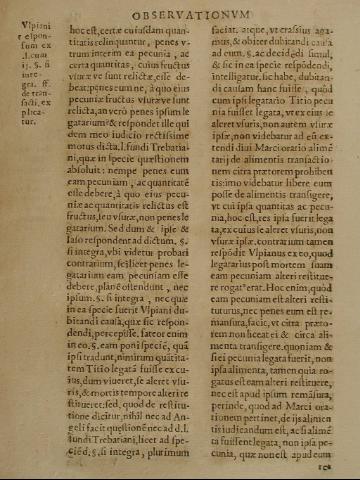 OBSERVATIONVM
Vlpiani
respon-
sum ex
l.cum
ij. §. si
inte-
gra. ff.
de tran-
sacti. ex
plica-
tur.
hoc est, certæ cuiusdam quan-
titatis relinquuntur, penes v-
trum interim ea pecunia, ac
certa quantitas, cuius fructus
vsuræ ve sunt relictæ, esse de-
beat: penes eum ne, à quo eius
pecuniæ fructus vsuræ ve sunt
relicta, an verò penes ipsum le
gatarium: & responder ille qui
dem meo iudicio rectissime
motus dicta.l. fundi Trebatia-
ni, quæ in specie quæstionem
absoluit: nempe penes eum
eam pecuniam, ac quantitatẽ
esse debere, à quo eius pecu-
niæ ac quantitatis relictus est
fructus, seu vsuræ, non penes le
gatarium. Sed dum & ipse &
Iaso respondent ad dictum. §.
si integra, vbi videtur probari
contrarium, scilicet penes le-
gatarium eam pecuniam esse
debere, planè ostendunt, nec
ipsum. §. si integra, nec quæ
in ea specie fuerit Vlpiani du-
bitandi causa, quæ sic respõ-
dendi, percepisse. fateor enim
in eo. §. eam poni speciẽ, quã
ipsi tradunt, nimirum quãtita-
tem Titio legatã fuisse ex cu-
ius, dum viueret, se aleret vsu-
ris, & mortis tempore alteri re
stitueret: sed, quod de restitu-
tione dicitur, nihil nec ad An-
geli facit quæstionẽ nec ad d.l.
fundi Trebatiani, licet ad spe-
ciẽ d. §, si integra, plurimum
faciat. atque, vt crassius aga-
mus, & obiter dubitandi causã
ad eum. §. ac decidẽdi simul,
& sic in ea specie respõdendi,
intelligatur, sic habe, dubitan-
di causam hanc fuisse, quòd
cum ipsi legatario Titio pecu
nia fuisset legata, vt ex eius se
aleret vsuris, non autẽm vsuræ
ipsæ, non videbatur ad eũ ex-
tendi diui Marci oratio alimẽ
tarij de alimentis transactio-
nem citra prætorem prohiben
tis: imo videbatur libere eum
posse de alimentis transigere,
vt cui ipsa quantitas ac pecu-
nia, hoc est, res ipsa fuerit lega
ta, ex cuius se aleret vsuris, non
vsuræ ipsæ. contrarium tamen
respõdit Vlpianus ex eo, quod
legatarius post mortem suam
eam pecuniam alteri restitue-
re rogatꝰerat. Hoc enim, quòd
eam pecuniam est alteri resti-
tuturus, nec penes eum est re-
mansura, facit, vt citra præto-
rem non liceat ei & circa ali-
menta transigere. quoniam &
si ei pecunia legata fuerit, non
ipsa alimenta, tamen quia ro-
gatus est eam alteri restituere,
nec est apud ipsum remãsura,
perinde, quod ad Marci ora-
tionem pertinet, de ijs alimen
tis iudicandum est, ac si alimẽ
ta fuissent legata, non ipsa pe-
cunia, quæ non est apud eum